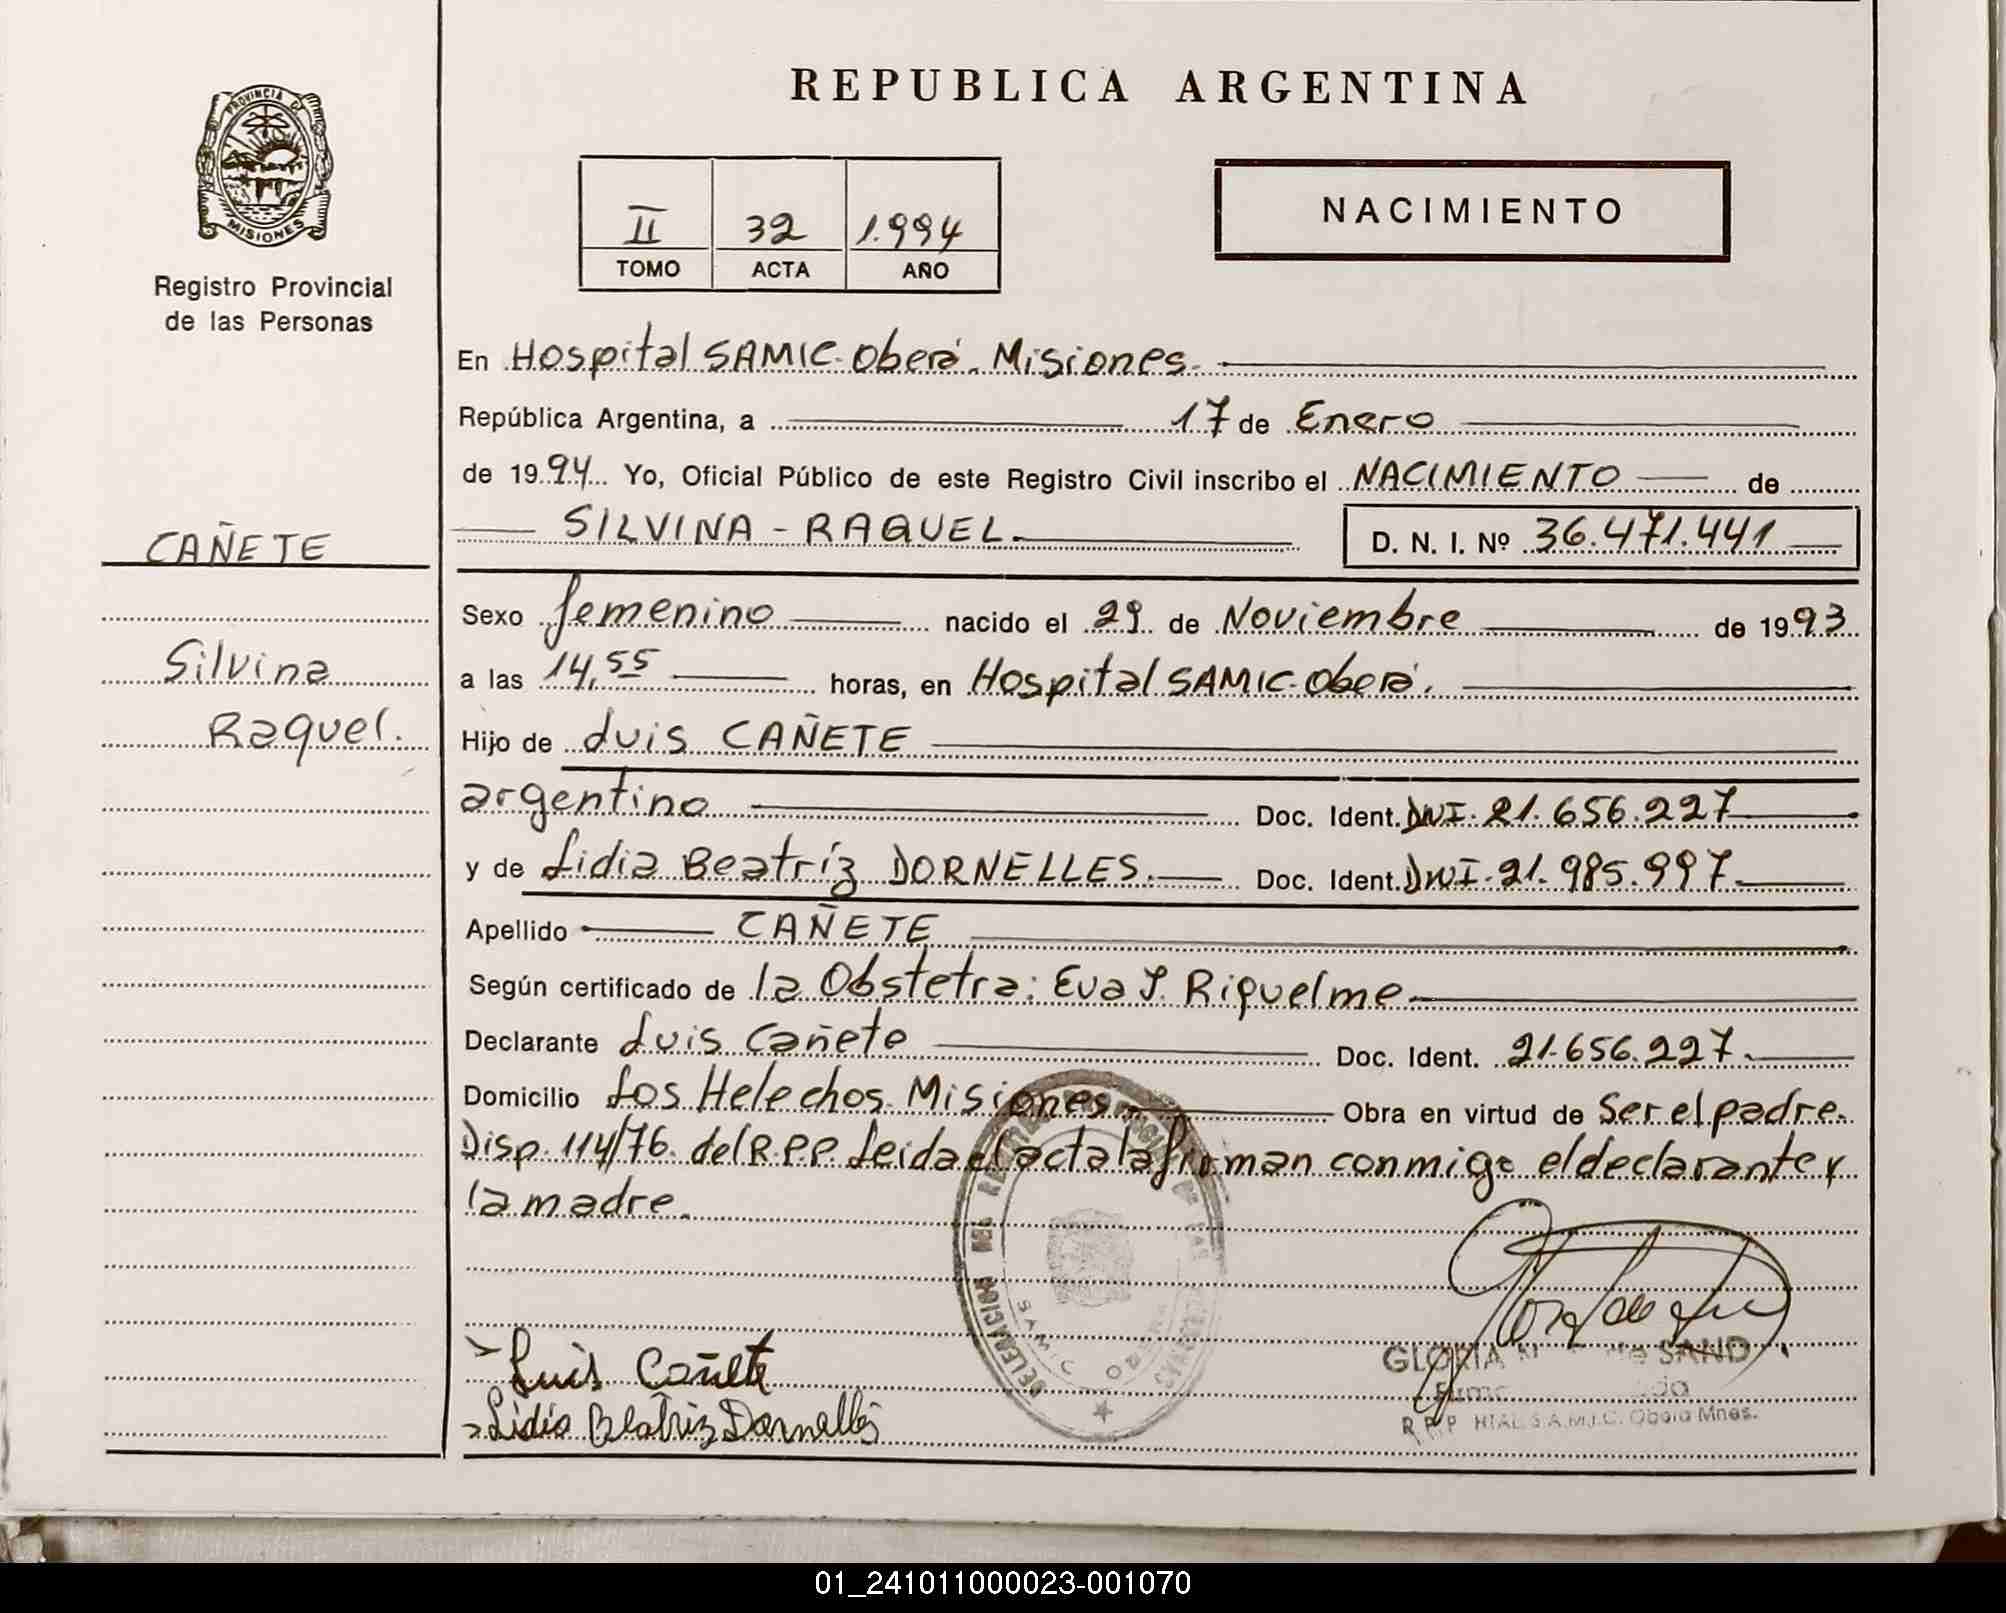 REPUBLICA ARGENTINA
PROVINCIA DE
MISIONES
Registro Provincial
de las Personas
II 32 1.994
TOMO ACTA AÑO
NACIMIENTO
En Hospital SAMIC-Oberá. Misiones.
República Argentina, a 17 de Enero
de 1994 Yo, Oficial Público de este Registro Civil inscribo el NACIMIENTO de
SILVINA - RAQUEL. D. N. I. Nº 36.471.441
CAÑETE
Silvina
Raquel.
Sexo femenino nacido el 29 de Noviembre de 1993
a las 14,55 horas, en Hospital SAMIC-Oberá.
Hijo de Luis CAÑETE
argentino Doc. Ident. DNI. 21.656.227
y de Lidia Beatríz DORNELLES. Doc. Ident. DNI. 21.985.997.
Apellido CAÑETE
Según certificado de la Obstetra: Eva J. Riquelme
Declarante Luis Cañete Doc. Ident. 21.656.227.
Domicilio Los Helechos. Misiones Obra en virtud de Ser el padre.
Disp. 114/76. del R.P.P. Leida el acta la firman conmigo el declarante y
la madre.
DELEGACION DEL REGISTRO PROVINCIAL DE LAS PERSONAS
Luis Cañete
Lidia Beatriz Dornelles
GLORIA de SAND
R.P.P. HTAL S.A.M.I.C. Oberá Mnes.
01_241011000023-001070